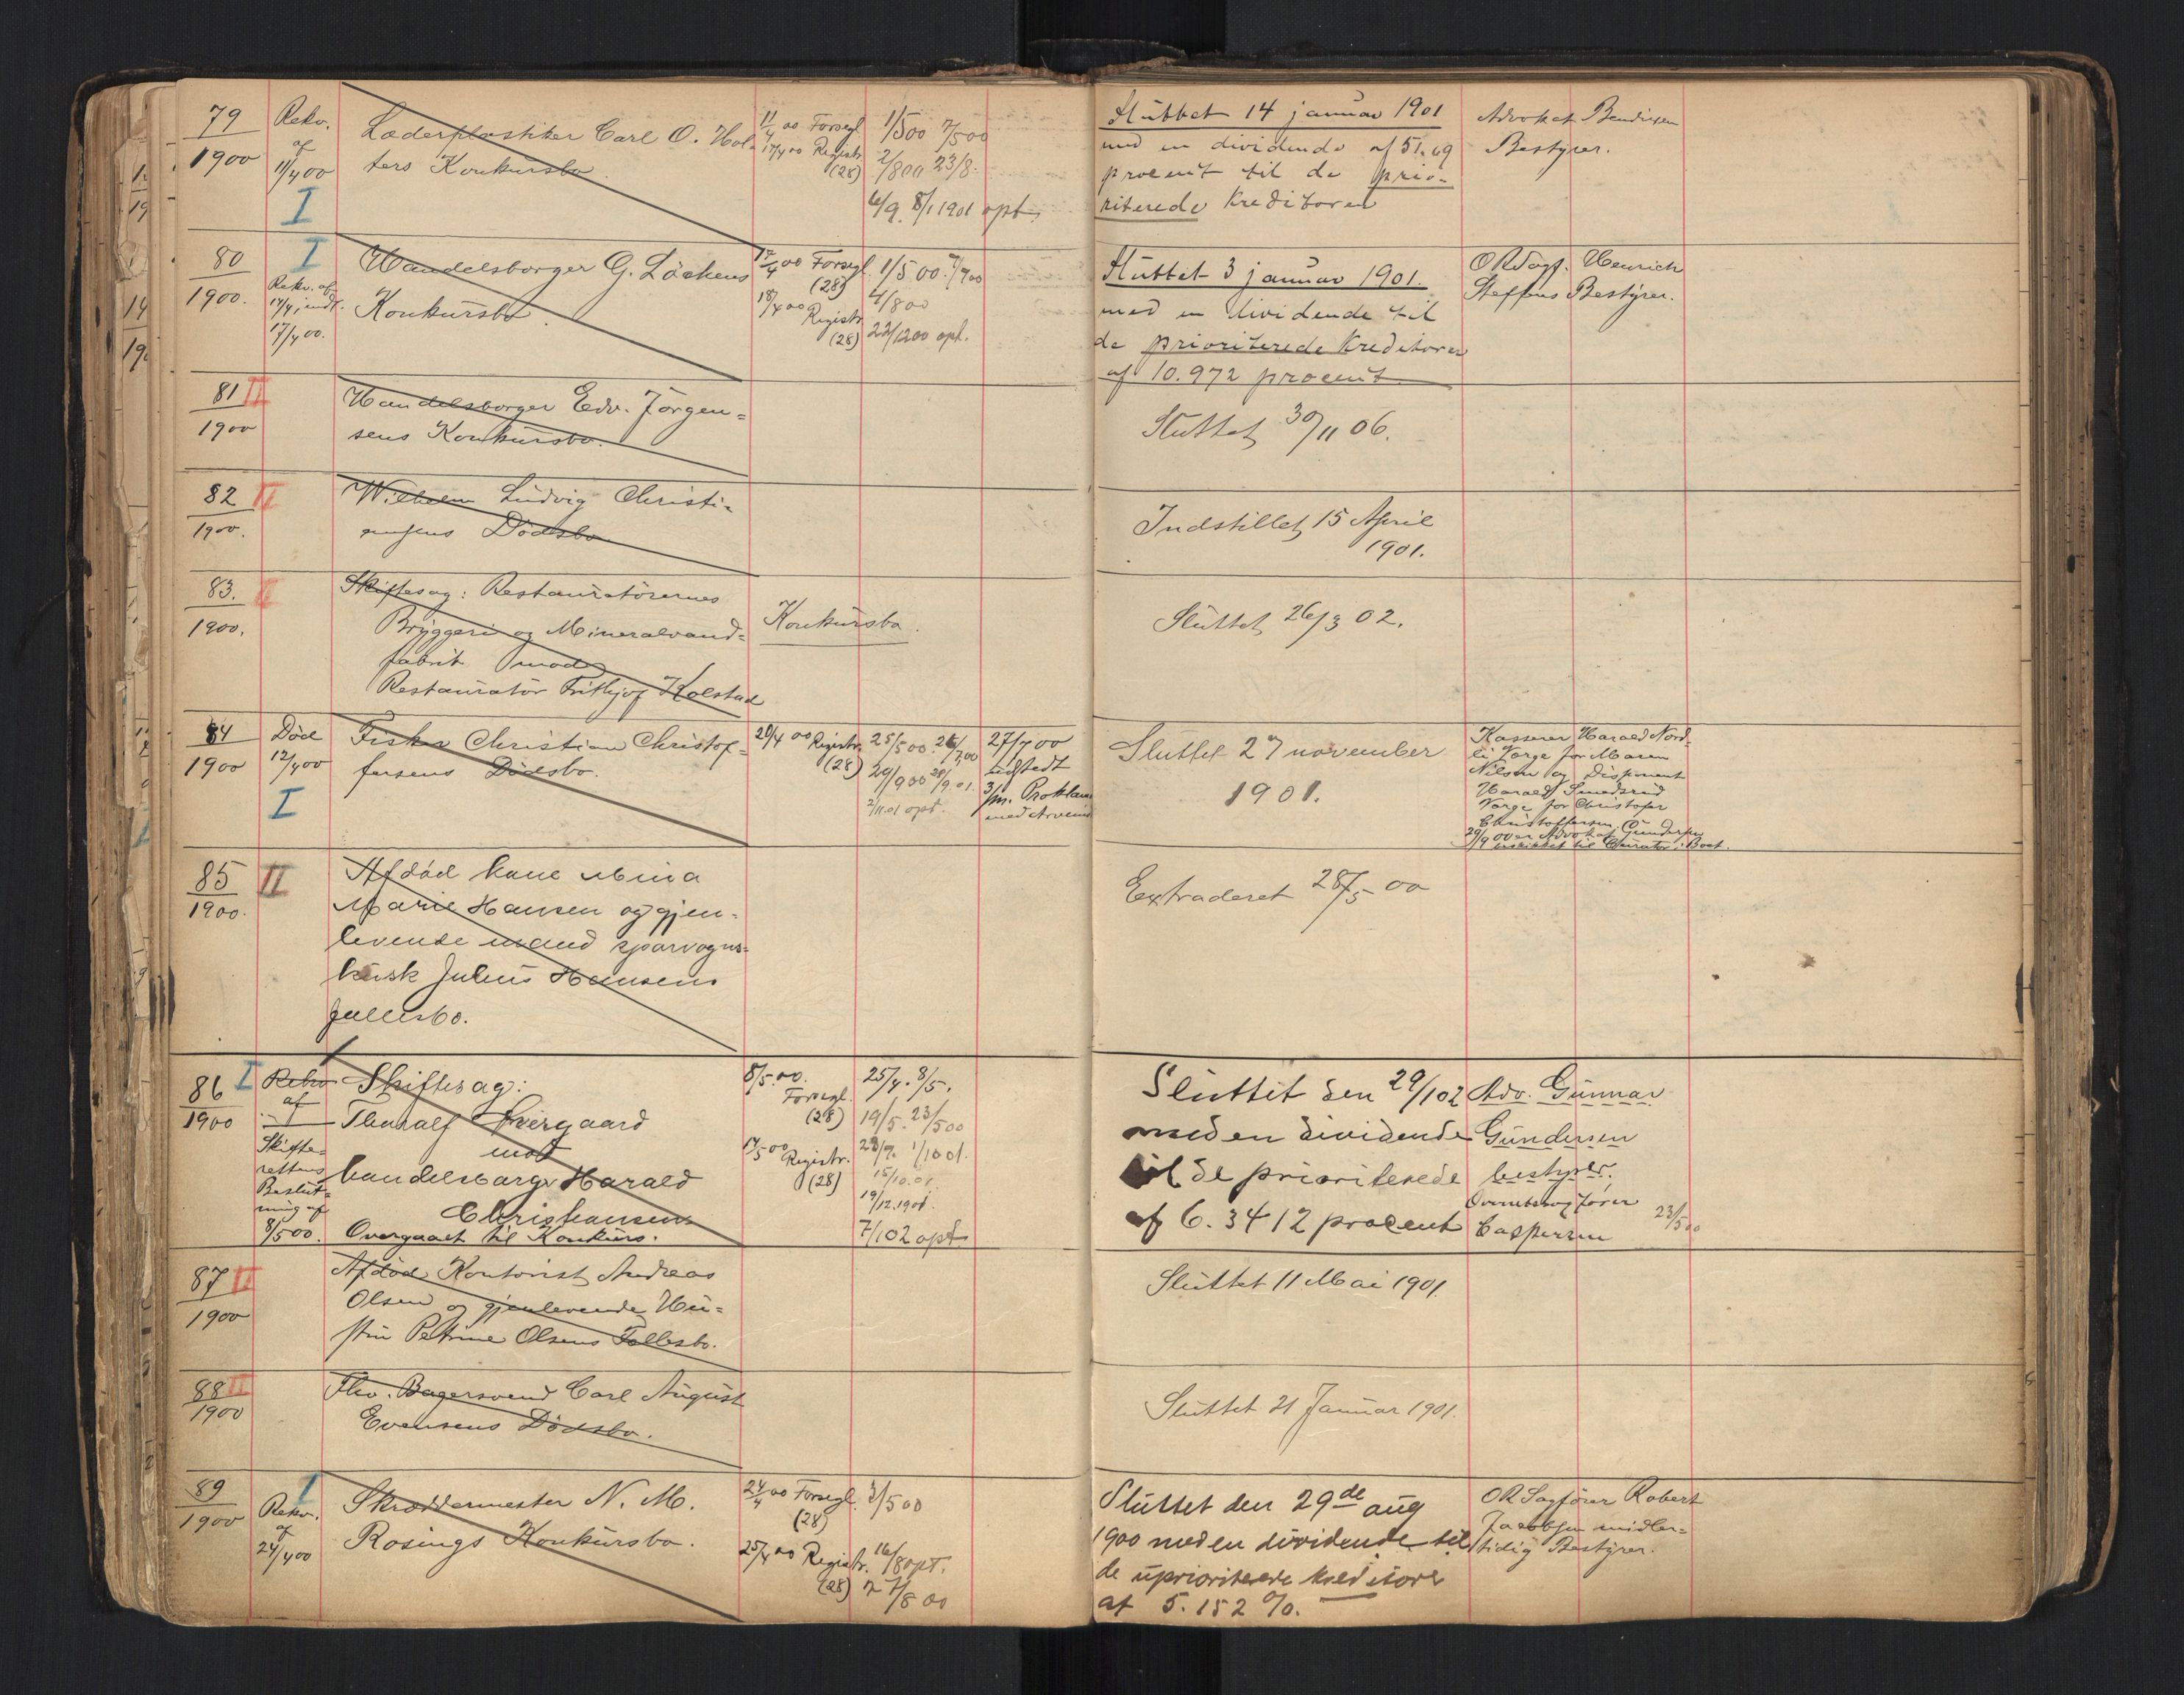 79
1900
Rekv.
af
11/4 00
I
Læderplastiker Carl O. Hol-
ters Konkursbo.
11/4 00 Forsegl.
17/4 00 Registr.
(28)
1/5 00 7/5 00
2/8 00 23/8.
6/9. 8/1 1901 opt.
Sluttet 14 januar 1901
med en dividende af 51.69
procent til de prio-
riterede kreditorer
Advokat Bendixen
Bestyrer.
80
1900.
I
Rekv. af
17/4, indl.
17/4 00.
Handelsborger G. Löckens
Konkursbo.
17/4 00 Forsegl.
(28)
18/4 00
Registr.
(28)
1/5 00. 7/7 00
4/8 00
22/12 00 opt.
Sluttet 3 januar 1901.
med en dividende til
de prioriterede kreditorer
af 10.972 procent
ORsagf. Henrich
Steffens Bestyrer.
81 II
1900
Handelsborger Edv. Jörgen=
sens Konkursbo.
Sluttet 30/11 06.
82 II
1900.
Wilhelm Ludvig Christi=
ansens Dödsbo
Indstillet 15 April
1901.
83. II
1900.
Skiftesag: Restauratörernes
Bryggeri og Mineralvand=
fabrik mod
Restauratör Frithjof Kolstad
Konkursbo.
Sluttet 26/3 02.
84
1900
Död
12/4 00
I
Fisker Christian Christof=
fersens Dödsbo.
20/4 00 Registr.
(28)
25/5 00 26/7 00
29/9 00 28/9.01.
2/11.01 opt.
27/7 00
udstedt
3/m. Proklama
med Arveind
Sluttet 27 november
1901.
Kasserer Harald Nord-
li Værge for Maren
Nilsen og Disponent
Harald Smedsrud
Værge for Christofer
Christoffersen.
29/9 00 er Advokat Gundersen
beskikket til Curator i Boet.
85 II
1900.
Afdöd kone Mina
Marie Hansen og gjen-
levende mand sporvogns-
kusk Julius Hansens
fællesbo.
Extraderet 28/5 00
86 I
1900
Rekv
af
Skifte-
rettens
Beslut=
ning af
8/5 00.
Skiftesag:
Thoralf
mod
handelsborger Harald
Christiansen
Overgaaet til Konkurs.
8/5.00.
Forsegl.
(28)
17/5 00
Registr.
(28)
25/4. 8/5.
19/5. 23/5 00
28/9. 1/10 01.
15/10.01.
19/12.1901.
7/1 02 opt
Sluttet den 29/1 02
med en dividende
til de prioriterede
af 6.3412 procent
Adv. Gunnar
Gundersen
bestyrer.
Overretssagförer
Caspersen 23/5 00
87 II
1900
Afdöd Kontorist Andreas
Olsen og gjenlevende Hu=
stru Petrine Olsens Fællesbo.
Sluttet 11 Mai 1901
88 II
1900
Fhv. Bagersvend Carl August
Evensens Dödsbo.
Sluttet 21 Januar 1901.
89
1900
I
Rekv.
af
24/4 00
Skræddermester N. M.
Rosings Konkursbo.
24/4 00 Forsegl.
(28)
25/4 00 Registr.
(28)
3/5 00
16/8 opt.
27/8 00
Sluttet den 29de aug
1900 med en dividende til
de uprioriterede kreditorer
af 5.152 %.
OR Sagförer Robert
Jacobsen midler=
tidig Bestyrer.